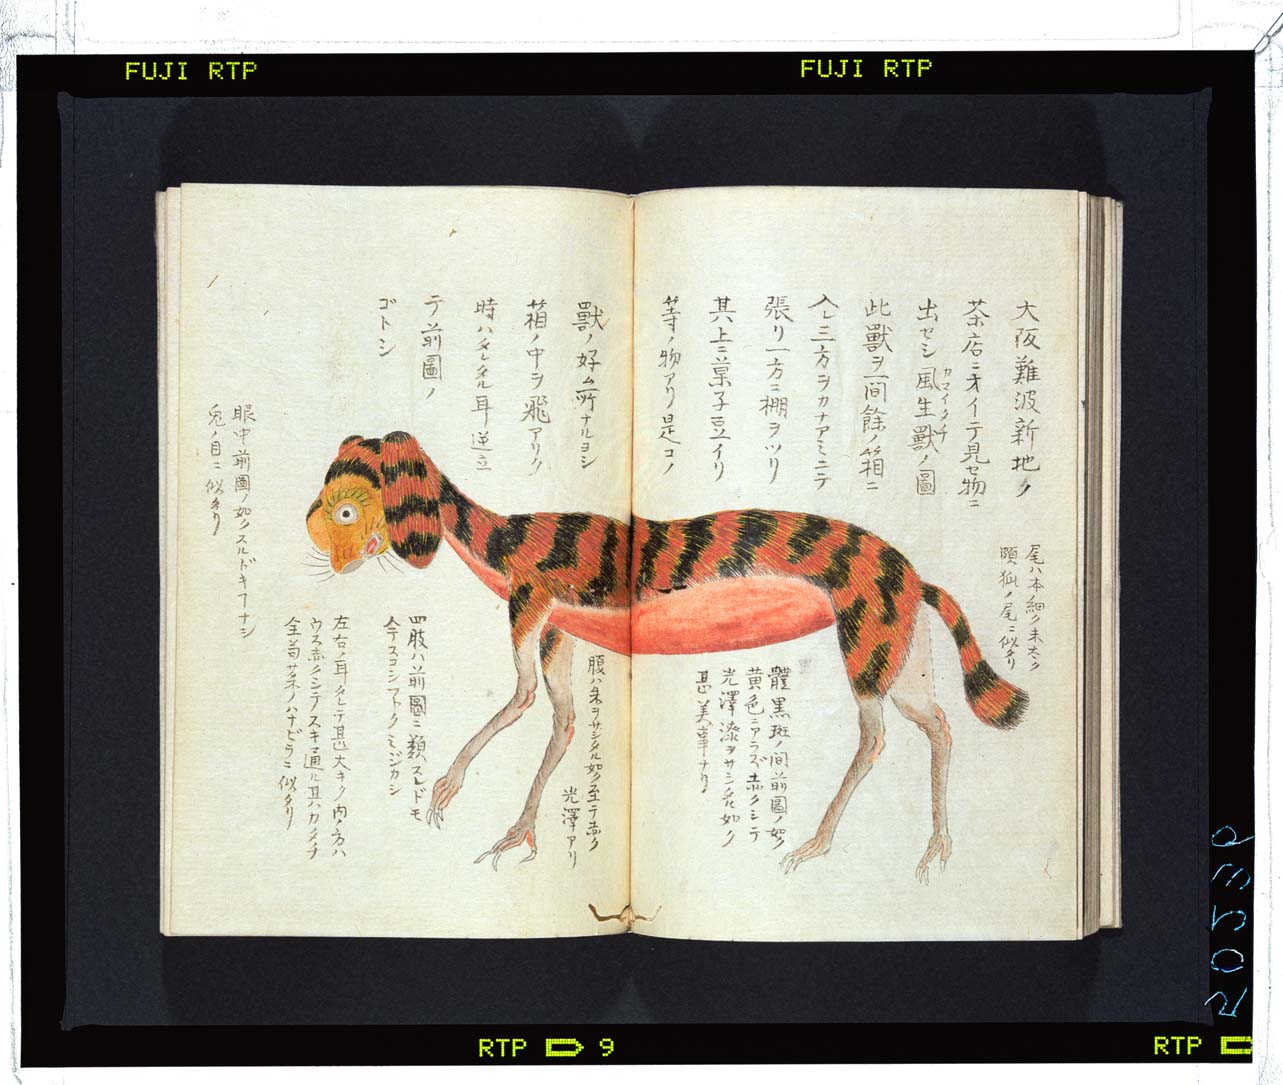 FUJI RTP
FUJI RTP
大阪難波新地ノ
茶店ニオイテ見セ物ニ
出セシ風生獸ノ圖
カマイタチ
此獸ヲ一間餘ノ箱ニ
入レ三方ヲカナアミニテ
張リ一方ニ棚ヲツリ
其上ニ菓子豆イリ
等ノ物アリ是コノ
獸ノ好ム所ナルヨシ
箱ノ中ヲ飛アリク
時ハタレタル耳逆立
テ前圖ノ
ゴトシ
尾ハ本細ク末太ク
頗狐ノ尾ニ似タリ
體黒斑ノ間前圖ノ如ク
黄色ニアラズ赤クシテ
光澤漆ヲサシタル如ク
甚美事ナリ
腹ハ朱ヲサシタル如ク至テ赤ク
光澤アリ
四肢ハ前圖ニ類スレドモ
今テスコシフトクミジカシ
左右ノ耳タレテ甚大キク内ノ方ハ
ウス赤クシテスキ通ル其ハカタチ
全
ノハナビラニ似タリ
眼中前圖ノ如クスルドキフナシ
兎ノ目ニ似タリ
RTP 9
RTP
20539